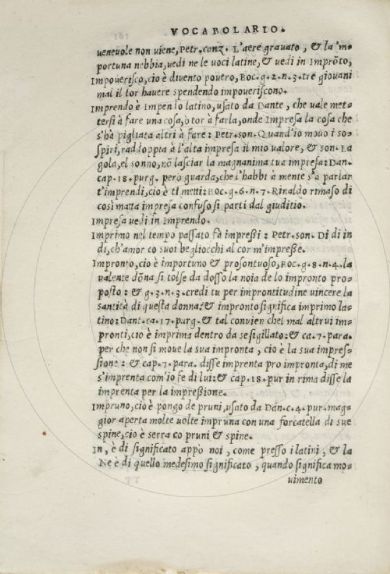 VOCABOLARIO.
uenevole non viene, Petr. canz. L'aere gravato, & la 'm-
portuna nebbia, uedi ne le uoci latine, & uedi in Imprõto,
Impouerisco, cio è divento povero, Boc. g. 2. n. 3. tre giovani
mal il tor hauere spendendo impoueriscono.
Imprendo è Impen lo latino, usato da Dante, che uale met
tersi à fare una cosa, o tor à farla, onde Impresa la cosa che
s'ha pigliata altri à fare: Petr. son. Quand'io mouo i so-
spiri, raddoppia è l'alta impresa il mio valore, & son. La
gola, el sonno, nõ lasciar la magnanima tua impresa: Dan.
cap. 18. purg. però guarda, che l'habbi à mente s'à parlar
t'imprendi, cio è ti metti: Boc. g. 6. n. 7. Rinaldo rimaso di
cosi matta impresa confuso si parti dal giuditio.
Impresa uedi in Imprendo.
Imprimo nel tempo passato fà impressi: Petr. son. Di di in
di, ch'amor co suoi begliocchi al cor m'impresse.
Impronto, cio è importuno & prosontuoso, Boc. g. 8. n. 4. la
valente dõna si tolse da dosso la noia de lo impronto pro-
posto: & g. 3. n. 3. credi tu per improntitudine uincere la
santità di questa donna: & impronto significa imprimo la-
tino: Dant. ca. 17. purg. & tal convien chel mal altrui im-
pronti, cio è imprima dentro da se sigillato: & ca. 7. para.
per che non si moue la sua impronta, cio è la sua impres-
sione: & cap. 7. para. disse imprenta pro impronta, di me
s'imprenta com'io fe di lui: & cap. 18. pur in rima disse la
imprenta per la impreßione.
Impruno, cio è pongo de pruni, usato da Dan. c. 4. pur. mag-
gior aperta molte uolte impruna con una forcatella di sue
spine, cio è serra co pruni & spine.
In, è di significato appò noi, come presso i latini, & la
Ne è di quello medesimo significato, quando significa mo-
uimento